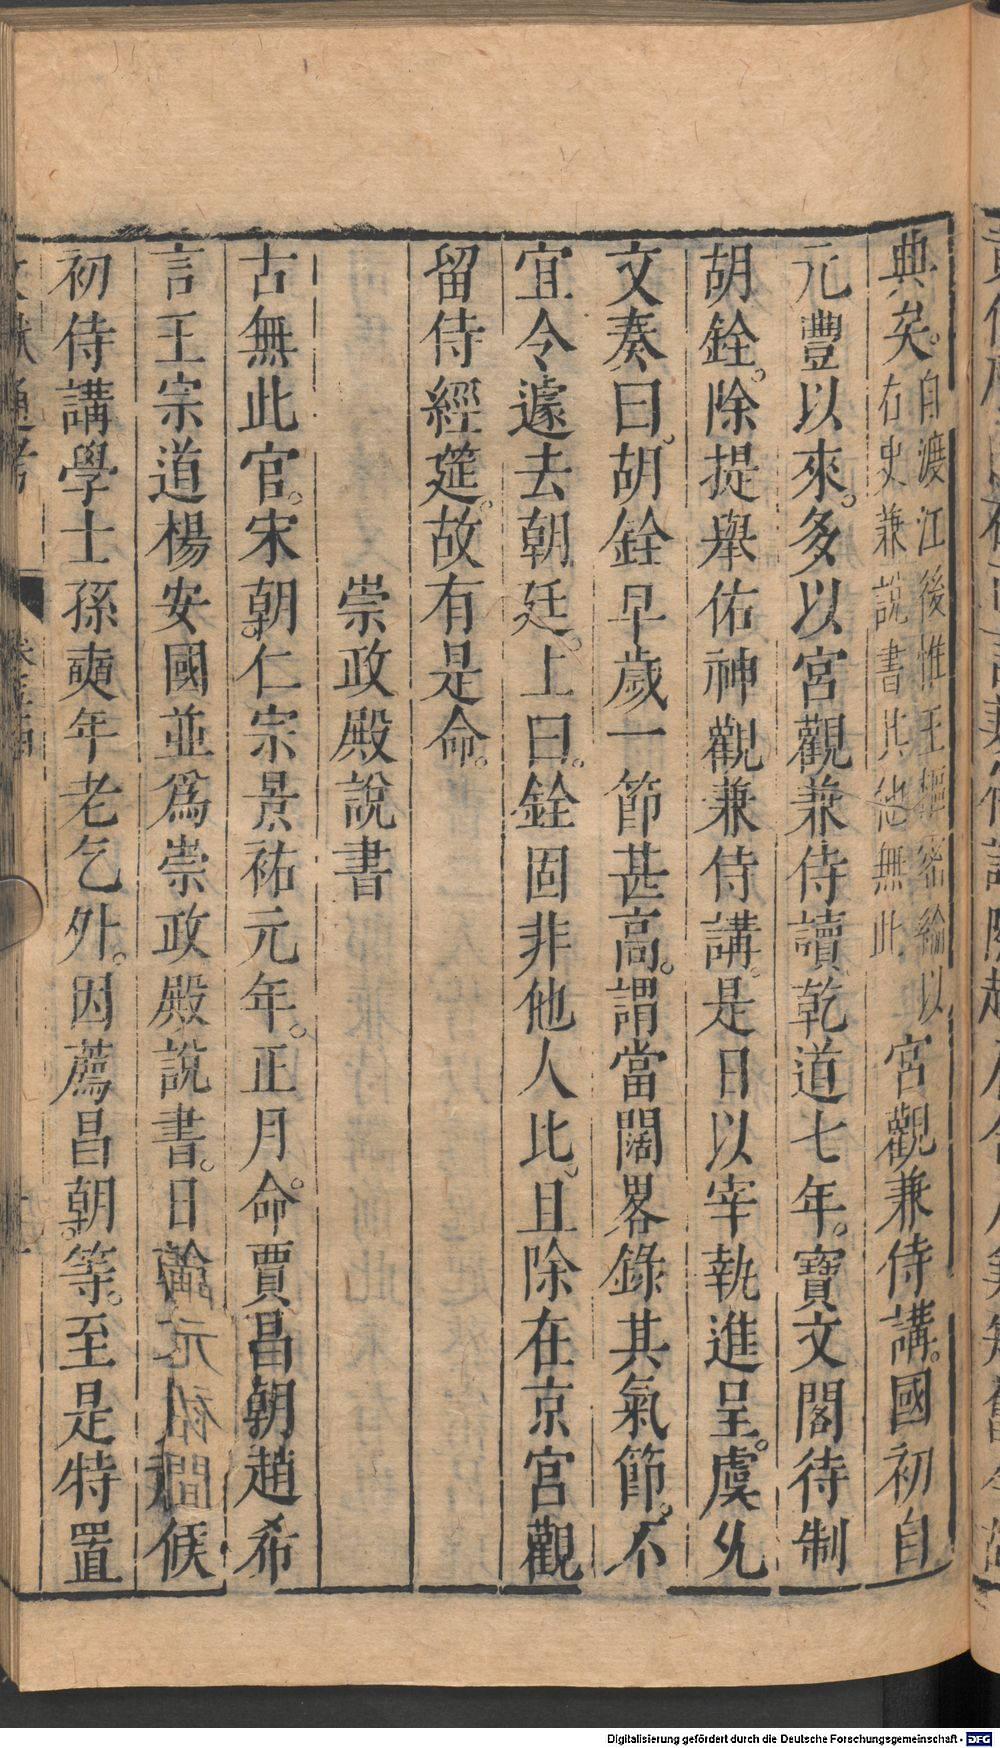 典矣。自渡江後惟王樞密綸以右史兼說書其他無此宮觀兼侍講。國初自
元豐以來。多以宮觀兼侍讀乾道七年。寶文閣待制
胡銓。除提舉佑神觀兼侍講。是日以宰執進呈。虞允
文奏曰。胡銓早歲一節甚高。謂當闊畧錄其氣節。不
宜令遽去朝廷。上曰。銓固非他人比。且除在京宮觀
留侍經筵。故有是命。
崇政殿說書
古無此官。宋朝。仁宗景祐元年。正月。命賈昌朝趙希
言王宗道楊安國並為崇政殿說書。日輪二人祗候
初侍講學士孫奭年老乞外。因薦昌朝。等。至是特置
文獻通考
Digitalisierung gefördert durch die Deutsche Forschungsgemeinschaft - DFG